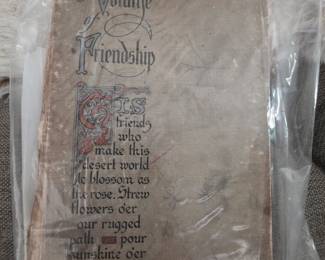 Volume
of
Friendship
TIS
friends
who
make this
desert world
to blossom as
the rose. Strew
flowers o'er
our rugged
path pour
sunshine o'er